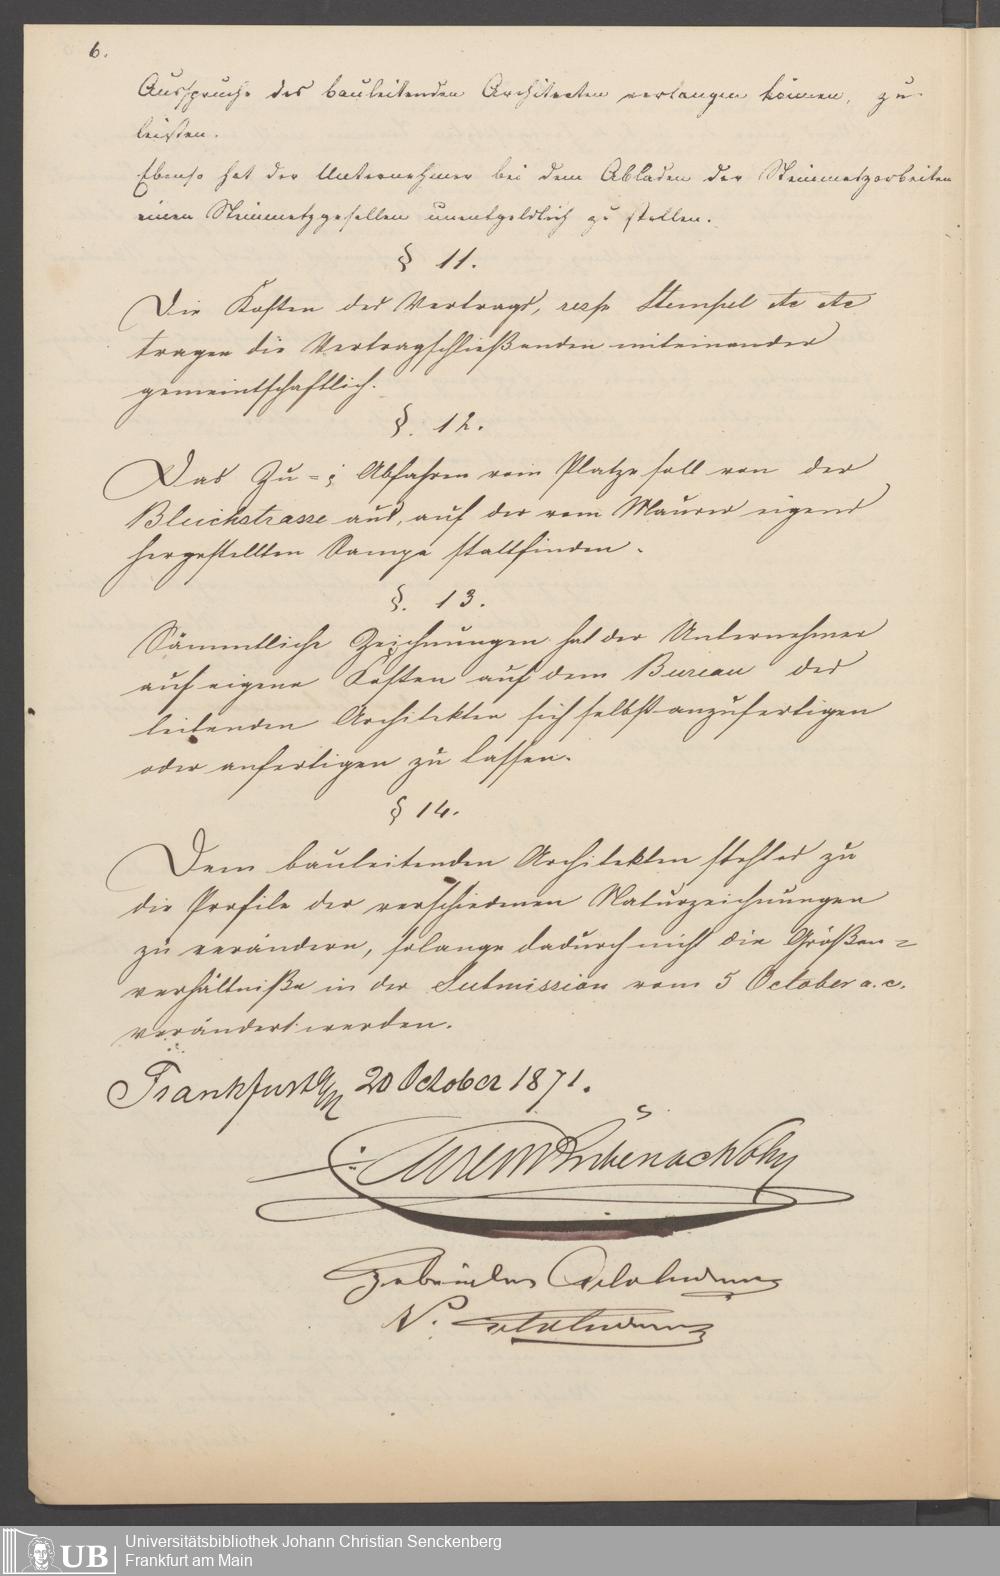 6.
Ausspruche des bauleitenden Architecten verlangen können, zu
leisten.
Ebenso hat der Unternehmer bei dem Abladen der Steinmetzarbeiten
einen Steinmetzgesellen unentgeldlich zu stellen.
§ 11.
Die Kosten des Vertrags, resp Stempel etc etc
tragen die Vertragschließenden miteinander
gemeintschaftlich.
§. 12.
Das Zu- & Abfahren vom Platze soll von der
Bleichstrasse aus, auf der vom Maurer eigens
hergestellten Rampe stattfinden.
§. 13.
Sämmtliche Zeichnungen hat der Unternehmer
auf eigene Kosten auf dem Bureau des
leitenden Architekten sich selbst anzufertigen
oder anfertigen zu lassen.
§ 14.
Dem bauleitenden Architekten steht es zu
die Profile der verschiedenen Naturzeichnungen
zu verändern, solange dadurch nicht die Größen=
verhältniße in der Submission vom 5 October a. c.
verändert werden.
Frankfurt a/M 20 October 1871.
Gebrüder
N.
UB
Universitätsbibliothek Johann Christian Senckenberg
Frankfurt am Main